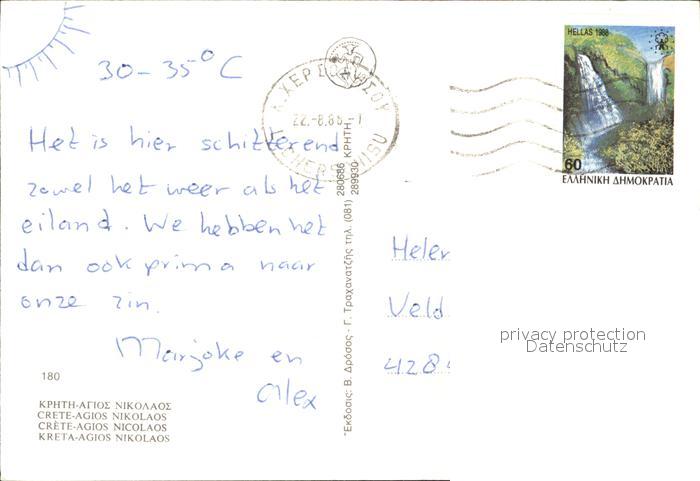 30-35°C
Het is hier schitterend
zowel het weer als het
eiland. We hebben het
dan ook prima naar
onze zin.
Marjoke en
Alex
180
ΚΡΗΤΗ-ΑΓΙΟΣ ΝΙΚΟΛΑΟΣ
CRETE-AGIOS NIKOLAOS
CRÈTE-AGIOS NICOLAOS
KRETA-AGIOS NIKOLAOS
Ἔκδοσις: Β. Δρόσος - Γ. Τραχανατζής τηλ. (081) 280686 ΚΡΗΤΗ
289930
22.-8.88
HELLAS 1988
60
ΕΛΛΗΝΙΚΗ ΔΗΜΟΚΡΑΤΙΑ
Heler
Veld
privacy protection
Datenschutz